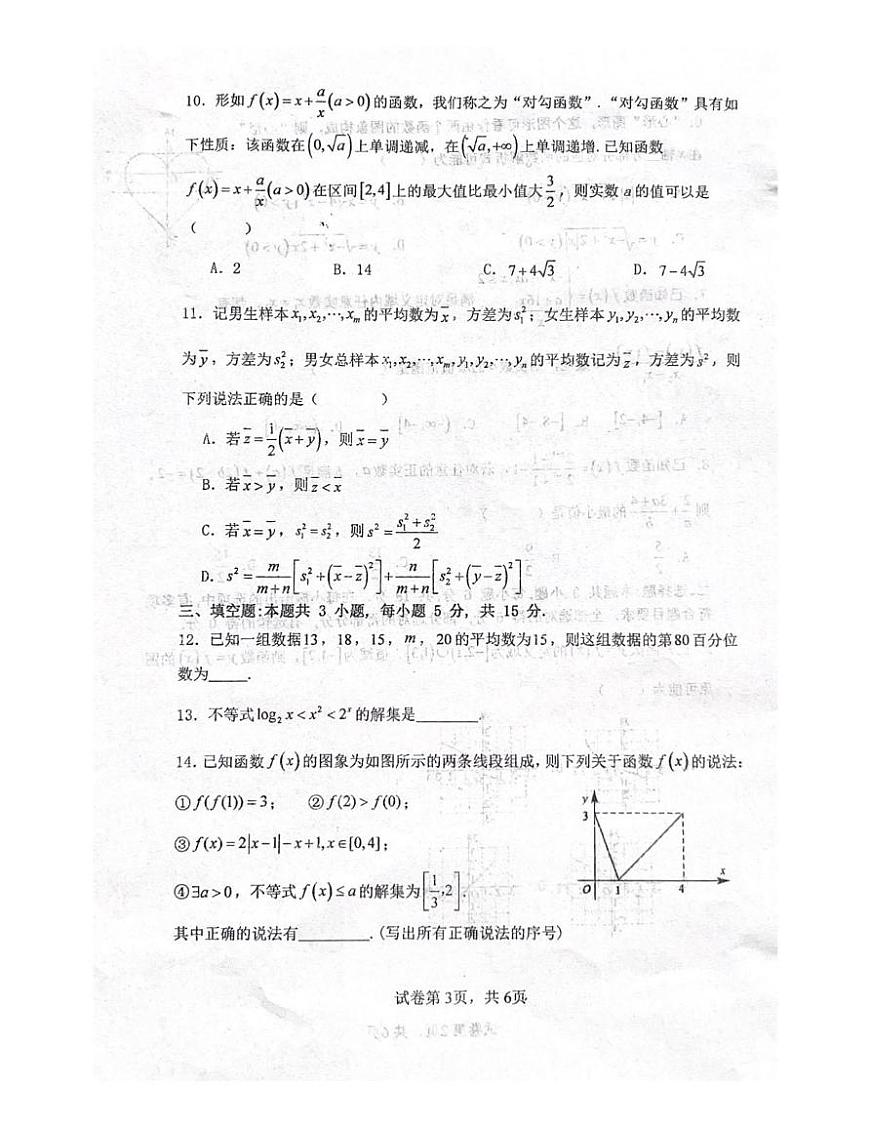 10. 形如 f(x)=x+a/x(a>0)的函数，我们称之为“对勾函数”.“对勾函数”具有如
下性质：该函数在(0,√a)上单调递减，在(√a,+∞)上单调递增.已知函数
f(x)=x+a/x(a>0)在区间[2,4]上的最大值比最小值大3/2，则实数a的值可以是
（ ）
A. 2 B. 14 C. 7+4√3 D. 7-4√3
11. 记男生样本x₁,x₂,⋯,xₘ的平均数为x̄，方差为s₁²；女生样本y₁,y₂,⋯,yₙ的平均数
为ȳ，方差为s₂²；男女总样本x₁,x₂,⋯,xₘ,y₁,y₂,⋯,yₙ的平均数记为z̄，方差为s²，则
下列说法正确的是（ ）
A. 若z̄=1/2(x̄+ȳ)，则x̄=ȳ
B. 若x̄>ȳ，则z̄<x̄
C. 若x̄=ȳ，s₁²=s₂²，则s²=(s₁²+s₂²)/2
D. s²=m/(m+n)[s₁²+(x̄-z̄)²]+n/(m+n)[s₂²+(ȳ-z̄)²]
三、填空题:本题共 3 小题，每小题 5 分，共 15 分.
12. 已知一组数据13，18，15，m，20的平均数为15，则这组数据的第80百分位
数为_____.
13. 不等式log₂x<x²<2ˣ的解集是________.
14. 已知函数f(x)的图象为如图所示的两条线段组成，则下列关于函数f(x)的说法:
①f(f(1))=3； ②f(2)>f(0)；
③f(x)=2|x-1|-x+1,x∈[0,4]；
④∃a>0，不等式f(x)≤a的解集为[1/3,2].
其中正确的说法有_________.(写出所有正确说法的序号)
y
3
O 1 4 x
试卷第 3页，共 6页